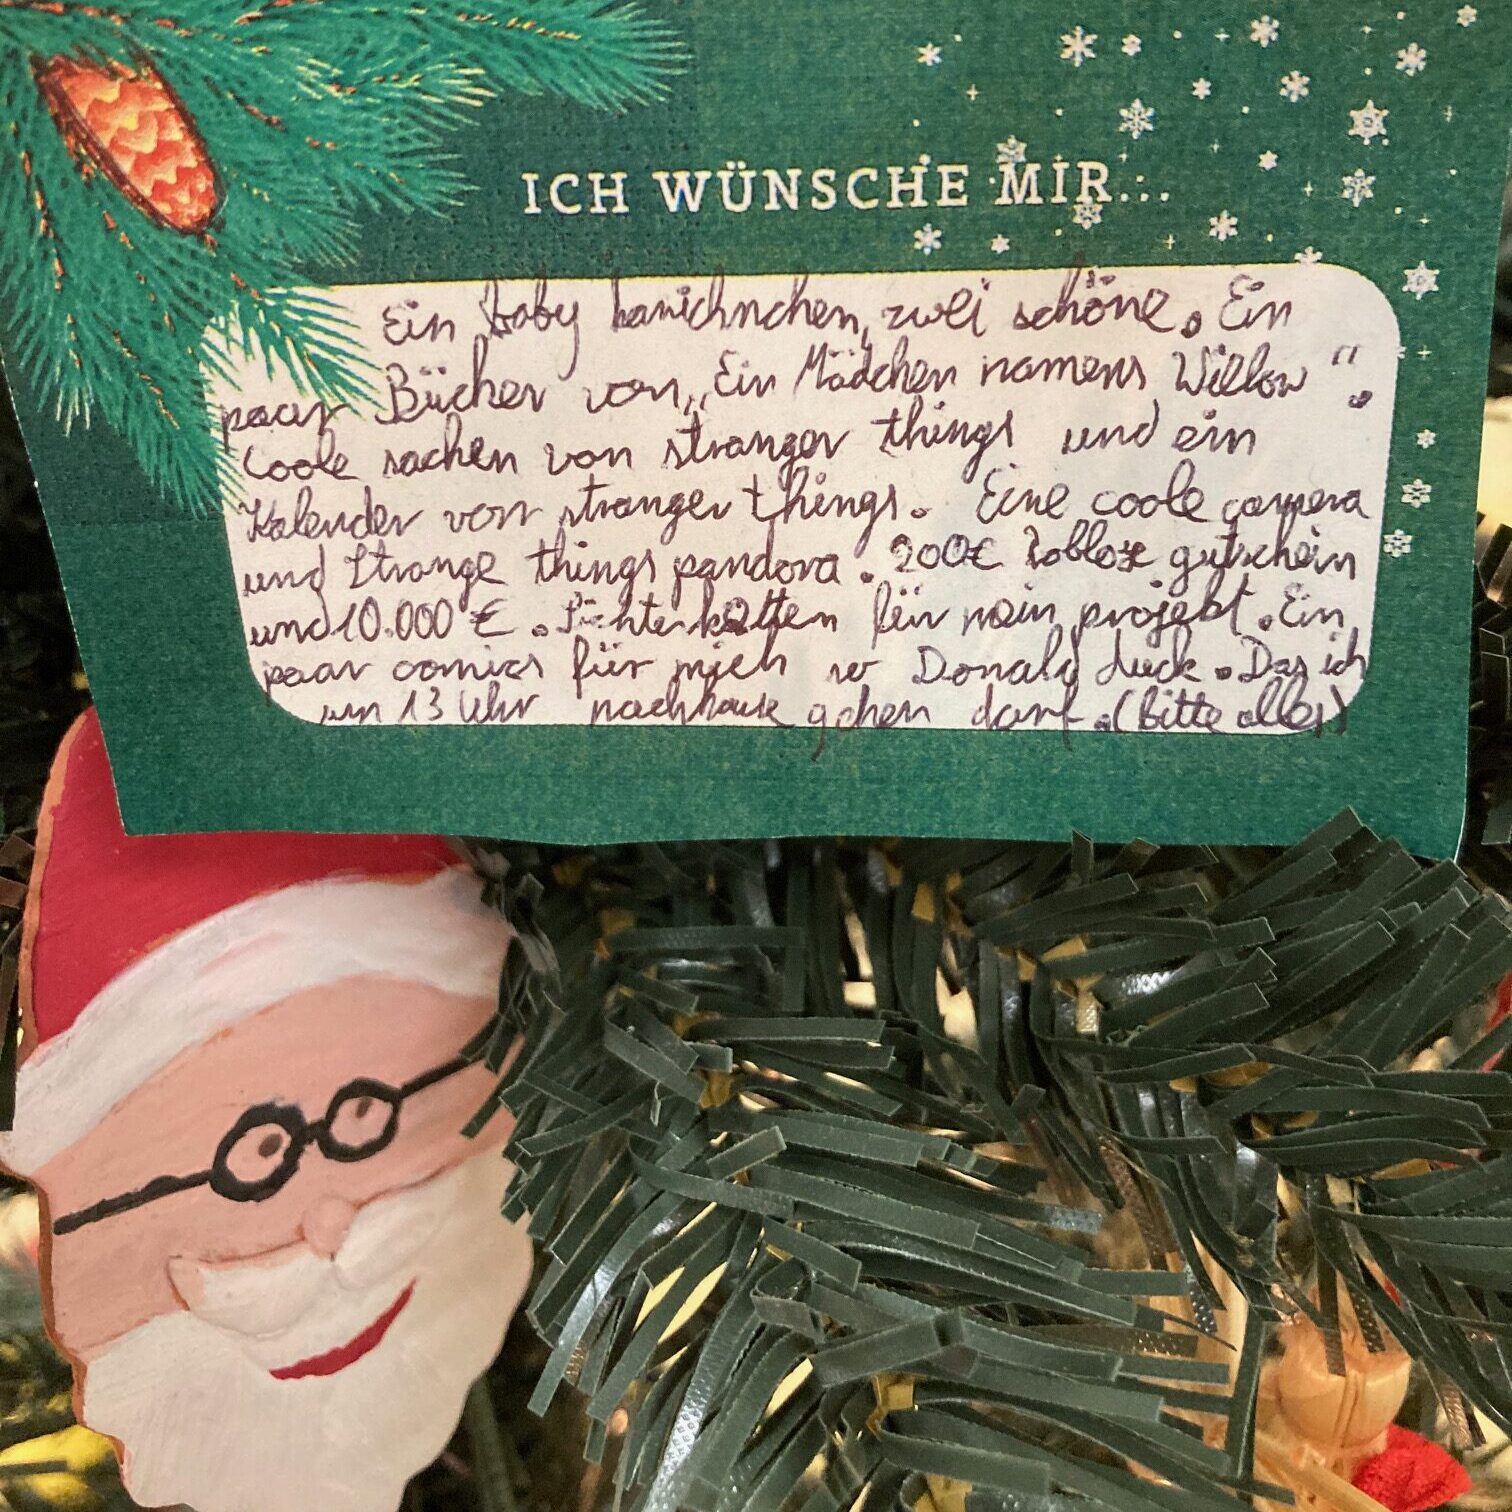 ICH WÜNSCHE MIR...
Ein Baby kanichnchen, zwei schöne. Ein
paar Bücher von „Ein Mädchen namens Willow“.
Coole sachen von stranger things und ein
Kalender von stranger things. Eine coole camera
und Strange things pandora. 200€ Roblox gutschein
und 10.000 €. Lichterketten für mein projekt. Ein
paar comics für mich w Donald duck. Das ich
um 13 Uhr nachhause gehen darf. (bitte alles)